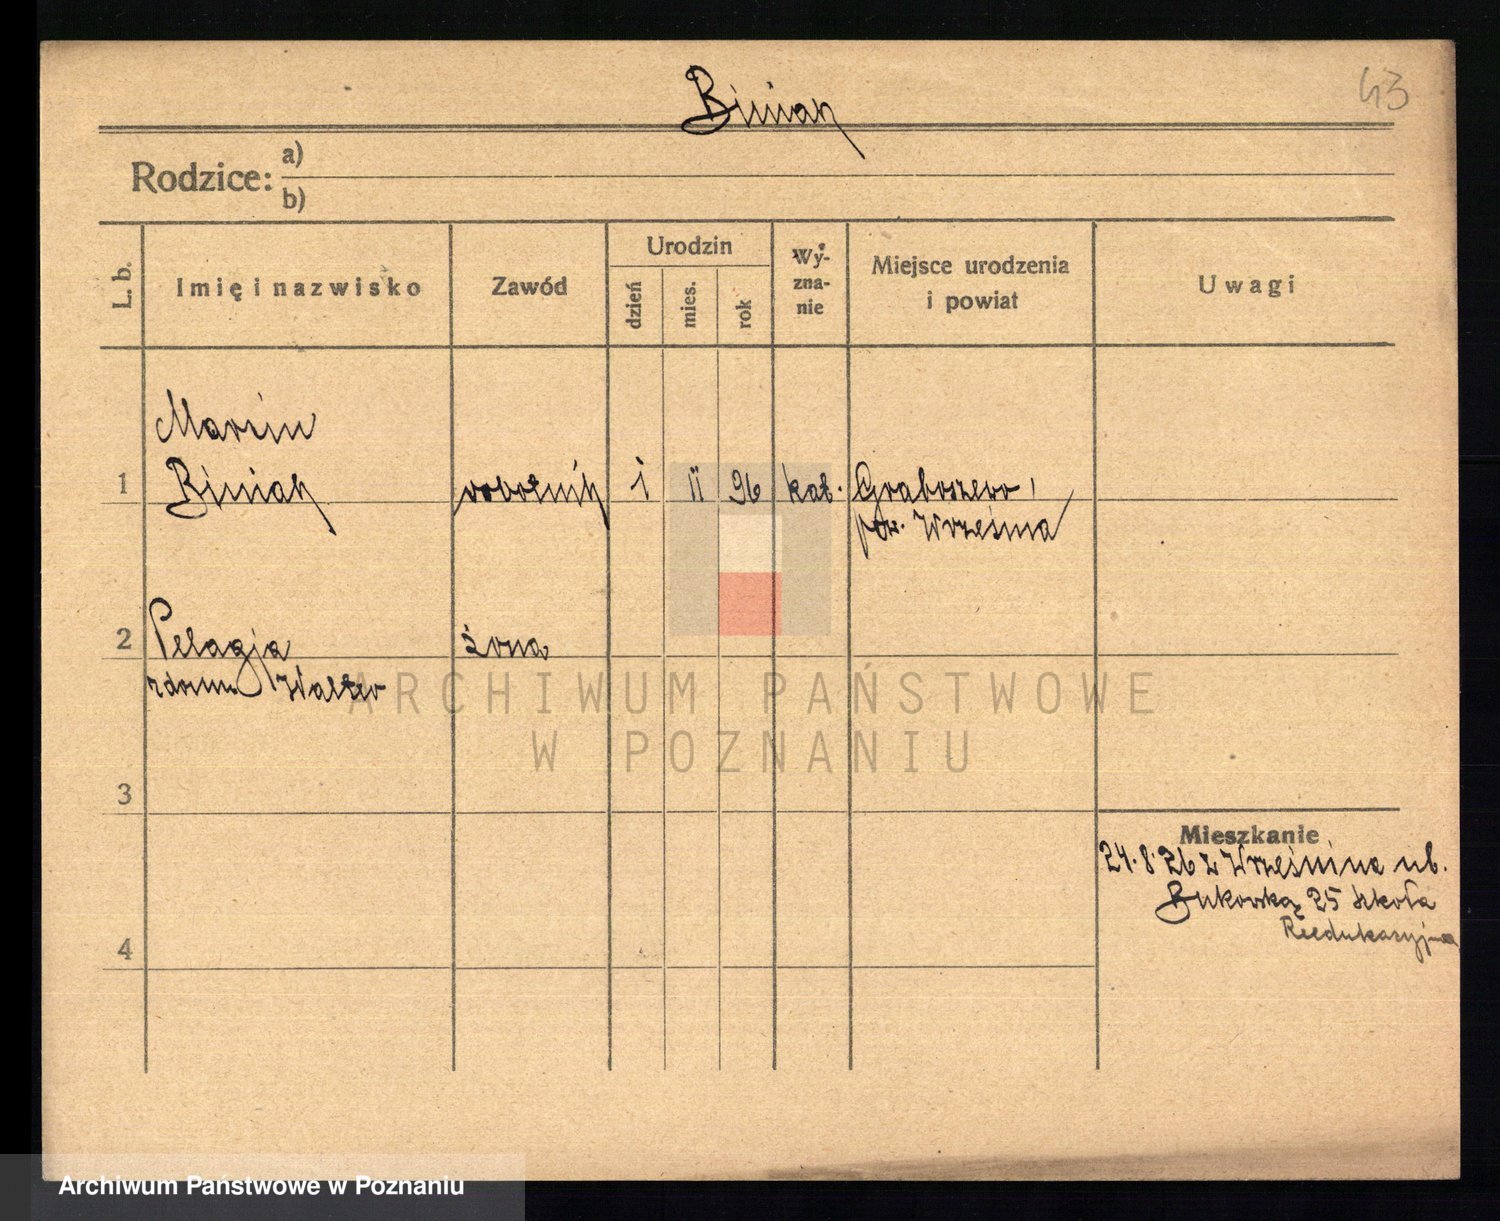 43
Biniak
Rodzice: a)
b)
L. b.
Imię i nazwisko
Zawód
Urodzin
dzień
mies.
rok
Wy-
zna-
nie
Miejsce urodzenia
i powiat
Uwagi
Marcin
1 Biniak robotnik 1 11 96 kat. Graboszewo,
pow. Września
2 Pelagja żona
z domu Walter
3
Mieszkanie
24.8.26 z Wrześni na ul.
Bukowską 25 szkoła
Reedukacyjna
4
ARCHIWUM PAŃSTWOWE
W POZNANIU
Archiwum Państwowe w Poznaniu